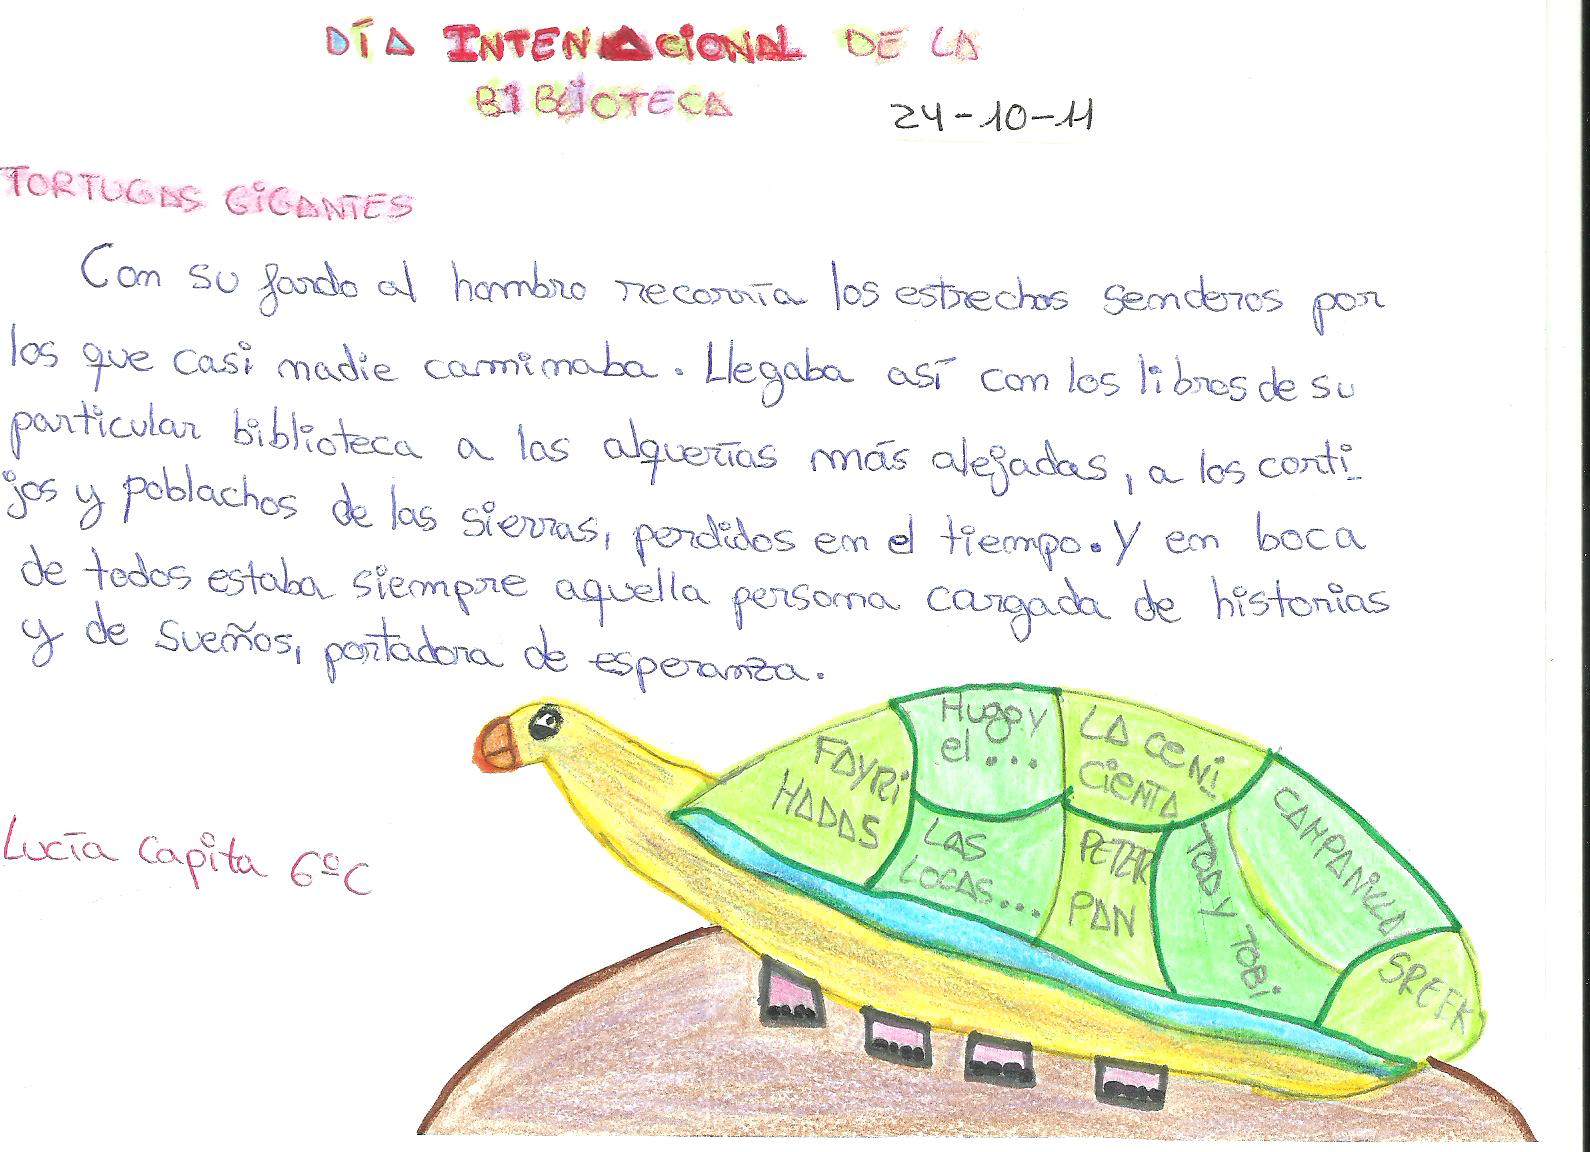 DÍA INTENACIONAL DE LA
BIBLIOTECA
24-10-11
TORTUGAS GIGANTES
Con su fardo al hombro recorría los estrechos senderos por
los que casi nadie caminaba. Llegaba así con los libros de su
particular biblioteca a las alquerías más alejadas, a los corti_
jos y poblachos de las sierras, perdidos en el tiempo. Y en boca
de todos estaba siempre aquella persona cargada de historias
y de sueños, portadora de esperanza.
Lucía Capita 6ºC
FAYRI
HADAS
Hugo y
el ...
LA CENI
CIENTA
CAMPANILLA
LAS
LOCAS...
PETER
PAN
TOD Y TOBI
SREEK